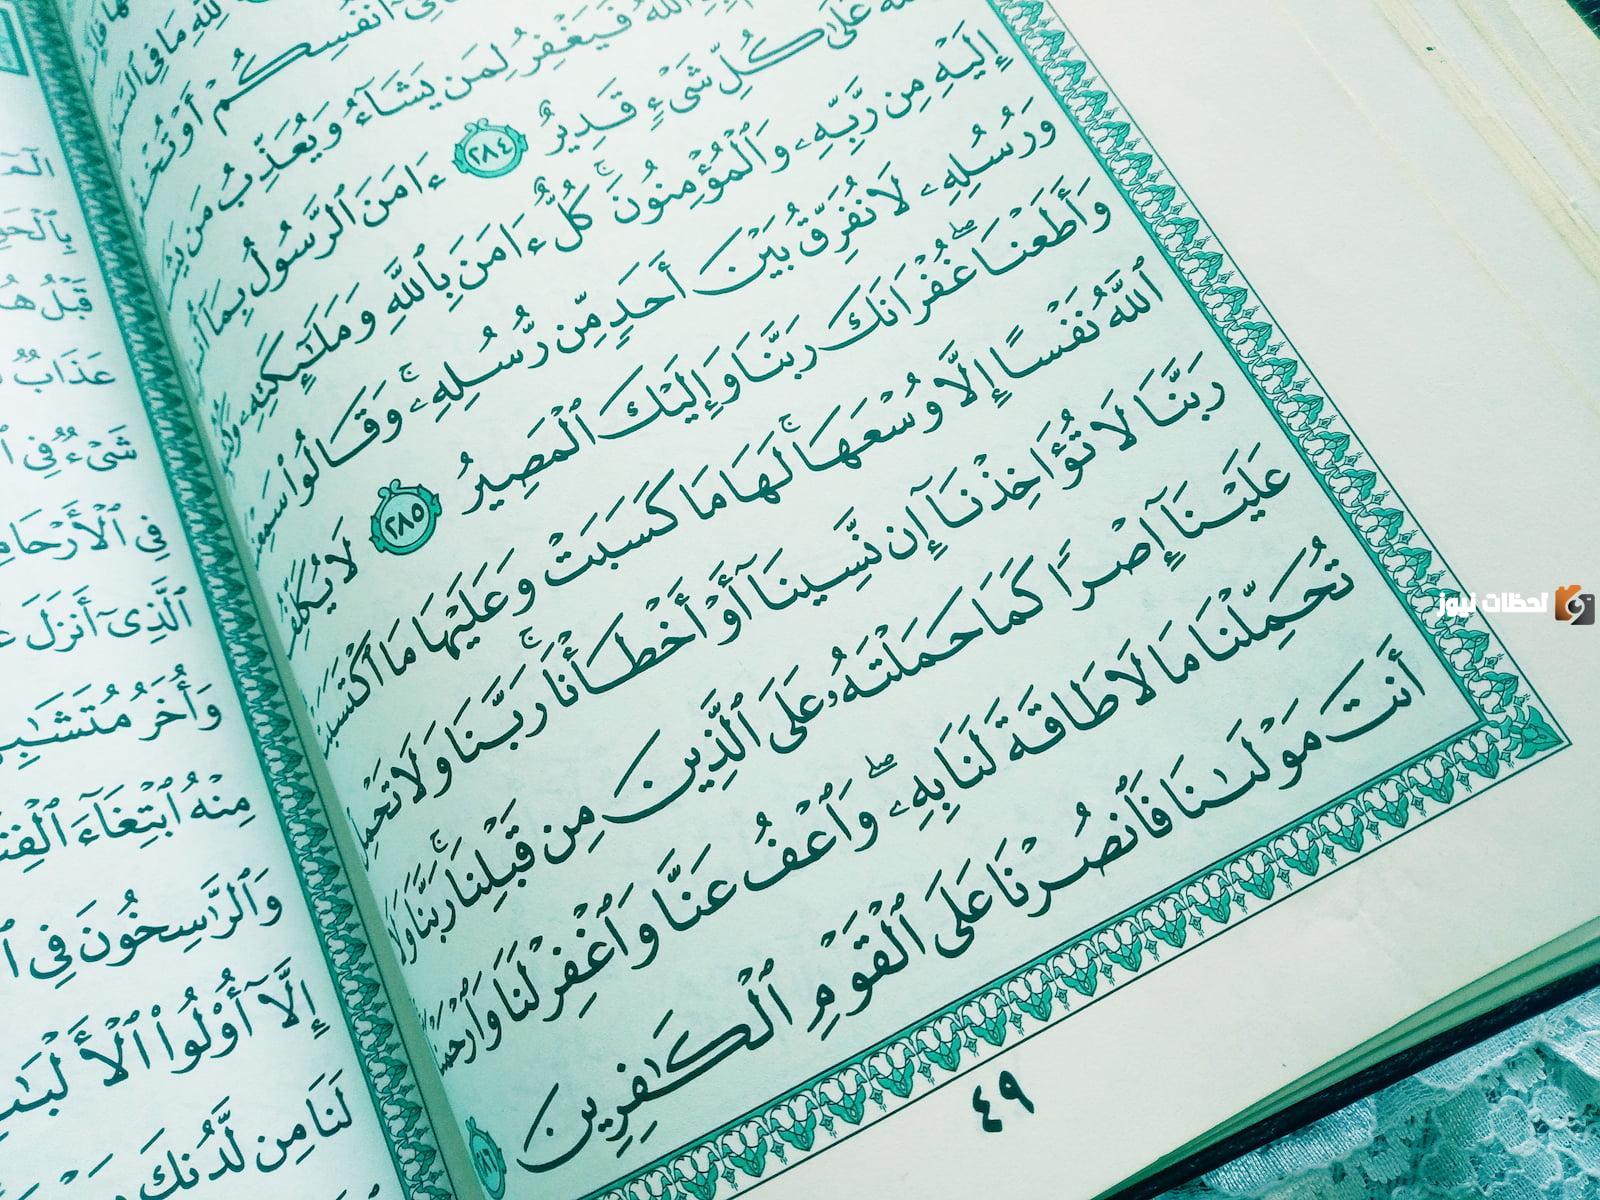 لِّلَّهِ مَا فِي
أَنفُسِكُمْ أَوْ
ٱللَّهُ فَيَغْفِرُ لِمَن يَشَآءُ وَيُعَذِّبُ مَن
عَلَىٰ كُلِّ شَىْءٍ قَدِيرٌ ٢٨٤ ءَامَنَ ٱلرَّسُولُ بِمَآ
إِلَيْهِ مِن رَّبِّهِۦ وَٱلْمُؤْمِنُونَ ۚ كُلٌّ ءَامَنَ بِٱللَّهِ وَمَلَٰٓئِكَتِهِۦ
وَرُسُلِهِۦ لَا نُفَرِّقُ بَيْنَ أَحَدٍ مِّن رُّسُلِهِۦ ۚ وَقَالُوا۟
وَأَطَعْنَا ۖ غُفْرَانَكَ رَبَّنَا وَإِلَيْكَ ٱلْمَصِيرُ ٢٨٥ لَا يُكَلِّفُ
ٱللَّهُ نَفْسًا إِلَّا وُسْعَهَا ۚ لَهَا مَا كَسَبَتْ وَعَلَيْهَا مَا ٱكْتَسَبَتْ
رَبَّنَا لَا تُؤَاخِذْنَآ إِن نَّسِينَآ أَوْ أَخْطَأْنَا ۚ رَبَّنَا وَلَا تَحْمِلْ
عَلَيْنَآ إِصْرًا كَمَا حَمَلْتَهُۥ عَلَى ٱلَّذِينَ مِن قَبْلِنَا ۚ رَبَّنَا وَلَا
تُحَمِّلْنَا مَا لَا طَاقَةَ لَنَا بِهِۦ ۖ وَٱعْفُ عَنَّا وَٱغْفِرْ لَنَا وَٱرْحَمْنَآ
أَنتَ مَوْلَىٰنَا فَٱنصُرْنَا عَلَى ٱلْقَوْمِ ٱلْكَٰفِرِينَ ٢٨٦
٤٩
عَذَابٌ
شَىْءٌ فِي
فِي ٱلْأَرْحَامِ
ٱلَّذِىٓ أَنزَلَ
وَأُخَرُ
مِنْهُ ٱبْتِغَآءَ
وَٱلرَّٰسِخُونَ فِي
إِلَّآ أُو۟لُوا۟ ٱلْأَلْبَٰبِ
لَنَا مِن لَّدُنكَ
لحظات نيوز